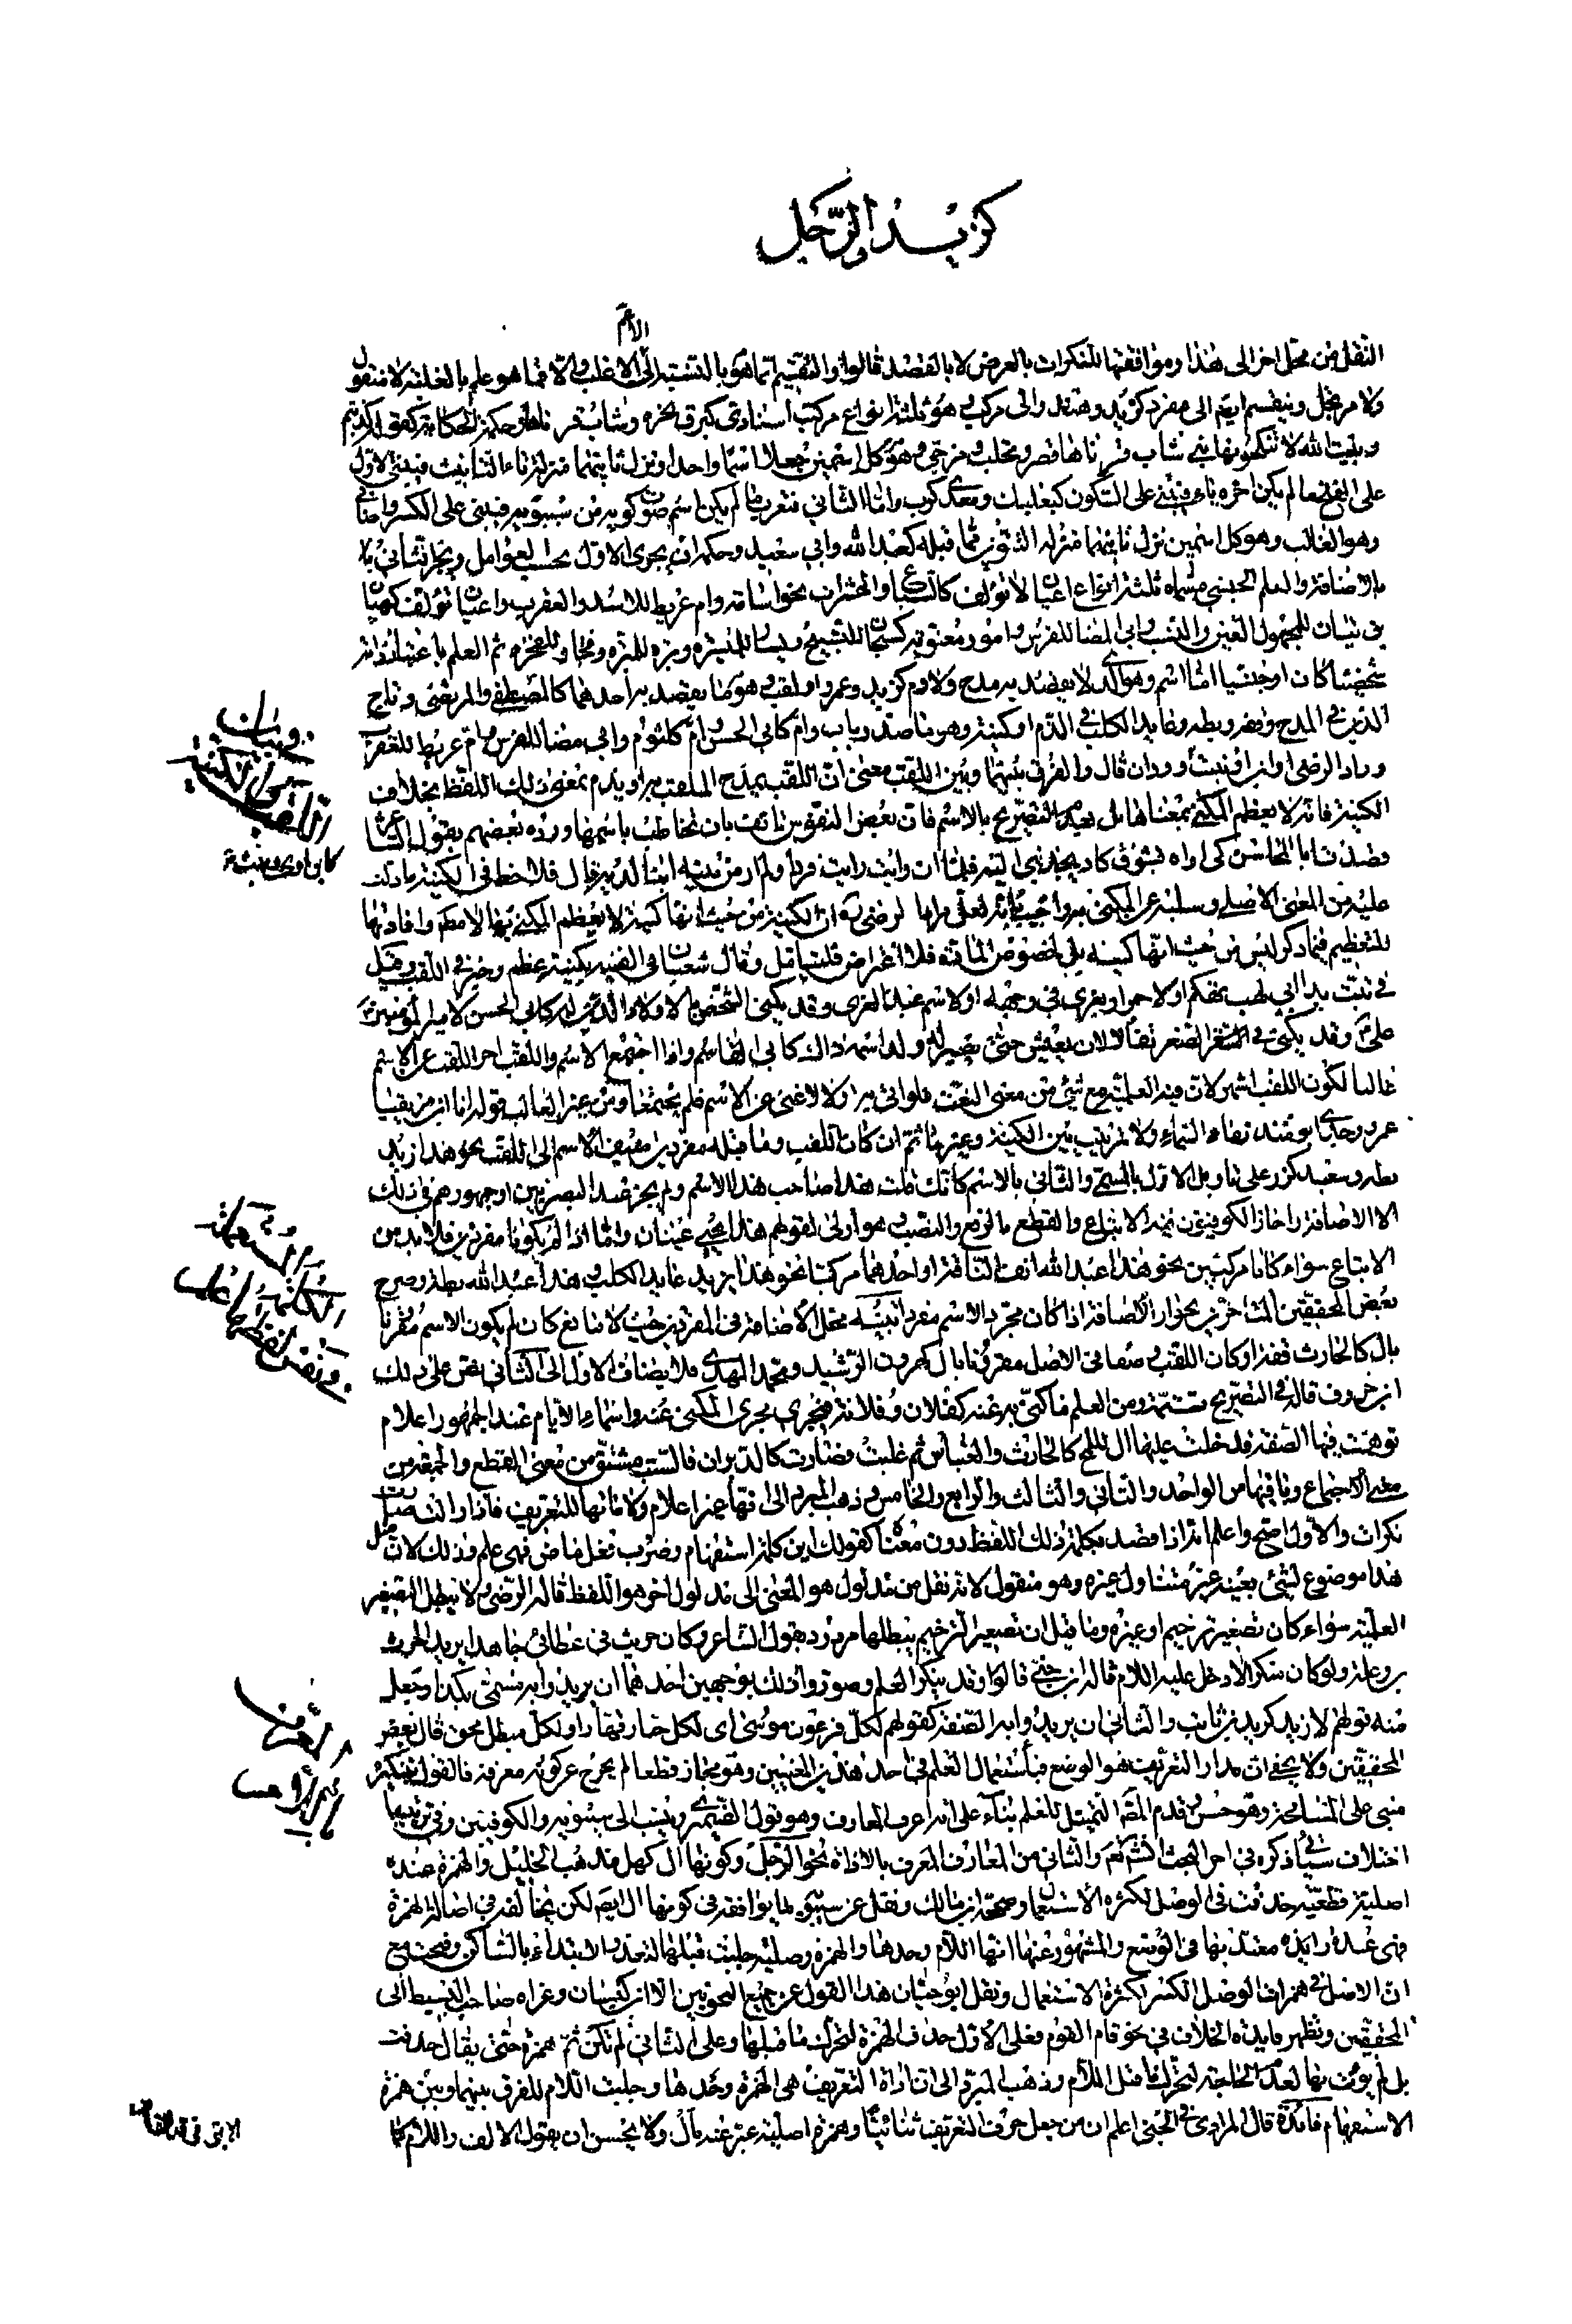 كزيد والرجل
الأعم
النقل من محل اخر الى هذا وموافقتها للنكرات بالعرض لا بالقصد قالوا والتقسيم انما هو بالنسبة الى الاغلب والا فما هو علم بالغلبة لا منقول
ولا مرتجل وينقسم ايضا الى مفرد كزيد وهند والى مركب وهو ثلثة انواع مركب اسنادي كبرق نحره وشاب قرناها وحكمه الحكاية كقوله كذبتم
وبيت الله لا تنكحونها بني شاب قرناها تصر وتحلب ومزجي وهو كل اسمين جعلا اسما واحدا ونزل ثانيهما منزلة تاء التانيث فيبنى الاول
على الفتح ما لم يكن اخره ياء فيبنى على السكون كبعلبك ومعدي كرب واما الثاني فتعرب ما لم يكن اسم صوت كويه من سيبويه فيبنى على الكسر واضافي
وهو الغالب وهو كل اسمين نزل ثانيهما منزلة التنوين مما قبله كعبد الله وابي سعيد وحكمه ان يجرى الاول بحسب العوامل ويجر الثاني
بالاضافة والعلم الجنسي مسماه ثلثة انواع اعيان لا تؤلف كالسباع والحشرات نحو اسامة وام عريط للاسد والعقرب واعيان تؤلف كهيان
بن بيان للمجهول العين والنسب وابي المضا للفرس وامور معنوية كسبحان للتسبيح ويسار للميسرة وبرة للمبرة وفجار للفجرة ثم العلم باعتبار ذاته
شخصيا كان او جنسيا اما اسم وهو الذي لا يقصد به مدح ولا ذم كزيد وعمرو او لقب وهو ما يقصد به احدهما كالمصطفى والمرتضى وتاج
الدين في المدح وقفه وبطه وعايد الكلب في الذم او كنية وهو ما صدر باب وام كابي الحسن وام كلثوم وابي مضا للفرس وام عريط للعقرب
وزاد الرضي او ابن او بنت وردان قال والفرق بينهما وبين اللقب معنى ان اللقب يمدح الملقب به او يذم بمعنى ذلك اللفظ بخلاف
الكنية فانه لا يعظم المكنى بمعناها بل بعدم التصريح بالاسم فان بعض النفوس تانف بان تخاطب باسمها ورده بعضهم بقول الشاعر
عليه من المعنى الاصلي وسلبه عن المكنى به واجيب
للتعظيم فيما ذكر ليس من حيث انها كنية بل لخصوص المادة
في تبت يدا ابي لهب
علي وقد يكنى في الصغر تفاؤلا لان يعيش حتى يصير له ولد اسمه ذاك كابي القاسم واذا اجتمع الاسم واللقب اخر اللقب عن الاسم
غالبا لكون اللقب اشهر لان فيه العلمية مع شيئ من معنى النعت فلو اتي به اولا لاغنى عن الاسم فلم يجتمعا ومن غير الغالب قوله انا ابن مزيقيا
عمرو وجدي ابوه منذر ماء السماء ولا ترتيب بين الكنية وغيرها ثم ان كان اللقب وما قبله مفردين اضيف الاسم الى اللقب نحو هذا زيد
بطه وسعيد كرز على تاويل الاول بالمسمى والثاني بالاسم كانك قلت هذا صاحب هذا الاسم ولم يجز عند البصريين او جمهورهم في ذلك
الا الاضافة واجاز الكوفيون فيه الاتباع والقطع بالرفع والنصب وهو اولى لقولهم هذا يحيى عينان واما اذا لم يكونا مفردين فلا بد من
الاتباع سواء كانا مركبين نحو هذا عبد الله انف الناقة او احدهما مركبا نحو هذا زيد عايد الكلب وهذا عبد الله بطه وصرح
بعض المحققين المتاخرين بجواز الاضافة اذا كان مجرد الاسم مفردا تنبيه محل الاضافة في المفردين حيث لا مانع كان لم يكون الاسم مقرونا
بال كالحارث قفه او كان اللقب وصفا في الاصل مقرونا بال كهرون الرشيد ومحمد المهدي فلا يضاف الاول الى الثاني نص على ذلك
ابن خروف قاله في التصريح تتمة ومن العلم ما كني به عنه كفلان وفلانة فيجري مجرى المكنى عنه واسماء الايام عند الجمهور اعلام
توهمت فيها الصفة فدخلت عليها ال للمح كالحارث والعباس ثم غلبت فصارت كالدبران فالسبت مشتق من معنى القطع والجمعة من
معنى الاجتماع وباقيها من الواحد والثاني والثالث والرابع والخامس وذهب المبرد الى انها غير اعلام ولاماتها للتعريف فاذا زالت صارت
نكرات والاول اصح واعلم انه اذا قصد بكلمة ذلك اللفظ دون معناه كقولك اين كلمة استفهام وضرب فعل ماض فهي علم وذلك لان مثل
هذا موضوع لشيئ بعينه غير متناول غيره وهو منقول لانه نقل من مدلول هو المعنى الى مدلول اخر هو اللفظ قاله الرضي ولا يبطل التصغير
العلمية سواء كان تصغير ترخيم او غيره وما قيل ان تصغير الترخيم يبطلها مردود بقول الشاعر وكان حريث في عطائي جاهدا يريد الحرث
بن وعلة ولو كان منكرا لادخل عليه اللام قاله ابن جني قالوا وقد ينكر العلم وصوروا ذلك بوجهين احدهما ان يريدوا به مسمى بكذا وجعل
منه قولهم لا زيد كزيد بن ثابت والثاني ان يريدوا به الصفة كقولهم لكل فرعون موسى اى لكل جبار قهار او لكل مبطل محق قال بعض
المحققين ولا يخفى ان مدار التعريف هو الوضع فباستعمال العلم في احد هذين المعنيين وهو مجاز قطعا لم يخرج عن كونه معرفة فالقول بتنكيره
مبني على المسامحة وهو حسن وقدم المص التمثيل للعلم بناء على انه اعرف المعارف وهو قول الصيمري وينسب الى سيبويه والكوفيين وفي ترتيبها
اختلاف سياتي ذكره في اخر المبحث انشاء الله تعالى والثاني من المعارف المعرف بالاداة نحو الرجل وكونها ال كهل مذهب الخليل والهمزة عنده
اصلية قطعية حذفت في الوصل لكثرة الاستعمال وصححه ابن مالك ونقل عن سيبويه ما يوافقه في كونها ال ايضا لكن يخالفه في اصالة الهمزة
فهي عنده زايدة معتد بها في الوضع والمشهور عنهما انها اللام وحدها والهمزة وصلية جلبت قبلها لتعذر الابتداء بالساكن وفتحت مع
ان الاصل في همزات الوصل الكسر لكثرة الاستعمال ونقل ابو حيان هذا القول عن جميع النحويين الا ابن كيسان وعزاه صاحب البسيط الى
المحققين وتظهر فايدة الخلاف في نحو قام القوم فعلى الاول حذفت الهمزة لتحرك ما قبلها وعلى الثاني لم تكن ثم همزة حتى يقال حذفت
بل لم يؤت بها لعدم الحاجة لتحرك ما قبل اللام وذهب المبرد الى ان اداة التعريف هي الهمزة وحدها وجلبت اللام للفرق بينها وبين همزة
الاستفهام فائدة قال المرادي في الجنى اعلم ان من جعل حرف التعريف ثنائيا وهمزه اصلية عبر عنه بال ولا يحسن ان يقول الالف واللام كما